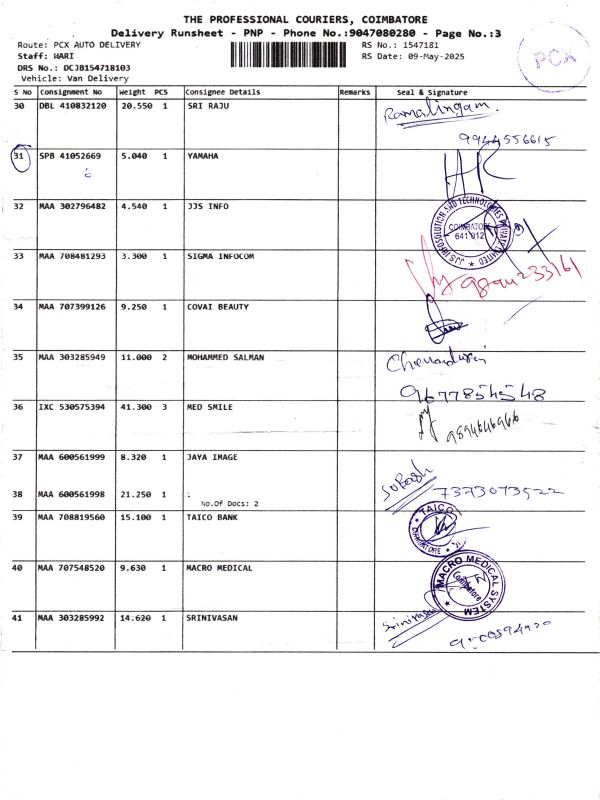 THE PROFESSIONAL COURIERS, COIMBATORE
Delivery Runsheet - PNP - Phone No.:9047080280 - Page No.:3
Route: PCX AUTO DELIVERY
RS No.: 1547181
Staff: HARI
RS Date: 09-May-2025
DRS No.: DCJB154718103
Vehicle: Van Delivery
PCX
S No Consignment No Weight PCS Consignee Details Remarks Seal & Signature
30 DBL 410832120 20.550 1 SRI RAJU Ramalingam
9944556615
31 SPB 41052669 5.040 1 YAMAHA
32 MAA 302796482 4.540 1 JJS INFO
COIMBATORE
641 012
33 MAA 708481293 3.300 1 SIGMA INFOCOM
34 MAA 707399126 9.250 1 COVAI BEAUTY
35 MAA 303285949 11.000 2 MOHAMMED SALMAN
9677854548
36 IXC 530575394 41.300 3 MED SMILE
9894646966
37 MAA 600561999 8.320 1 JAYA IMAGE Subash
7373073522
38 MAA 600561998 21.250 1 .
No.Of Docs: 2
39 MAA 708819560 15.100 1 TAICO BANK TAICO
COIMBATORE
40 MAA 707548520 9.630 1 MACRO MEDICAL MACRO MEDICAL SYSTEM
Coimbatore
41 MAA 303285992 14.620 1 SRINIVASAN Srinivasan